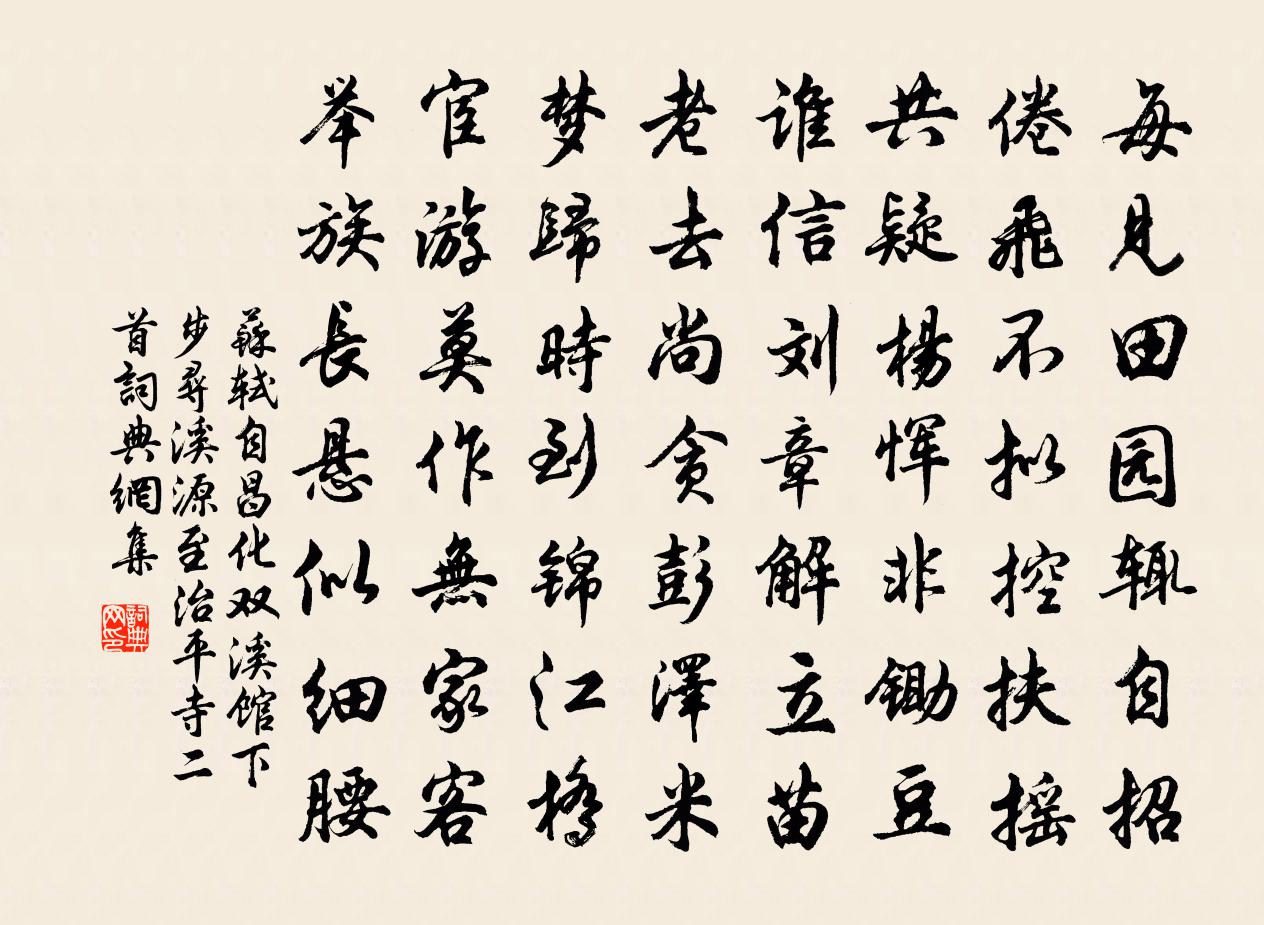 每見田园辄自招
倦飛不拟控扶摇
共疑楊恽非锄豆
谁信刘章解立苗
老去尚贪彭澤米
梦歸時到锦江橋
宦游莫作無家客
举族長悬似细腰
蘇轼自昌化双溪馆下
步尋溪源至治平寺二
首詞典網集
詞典网印